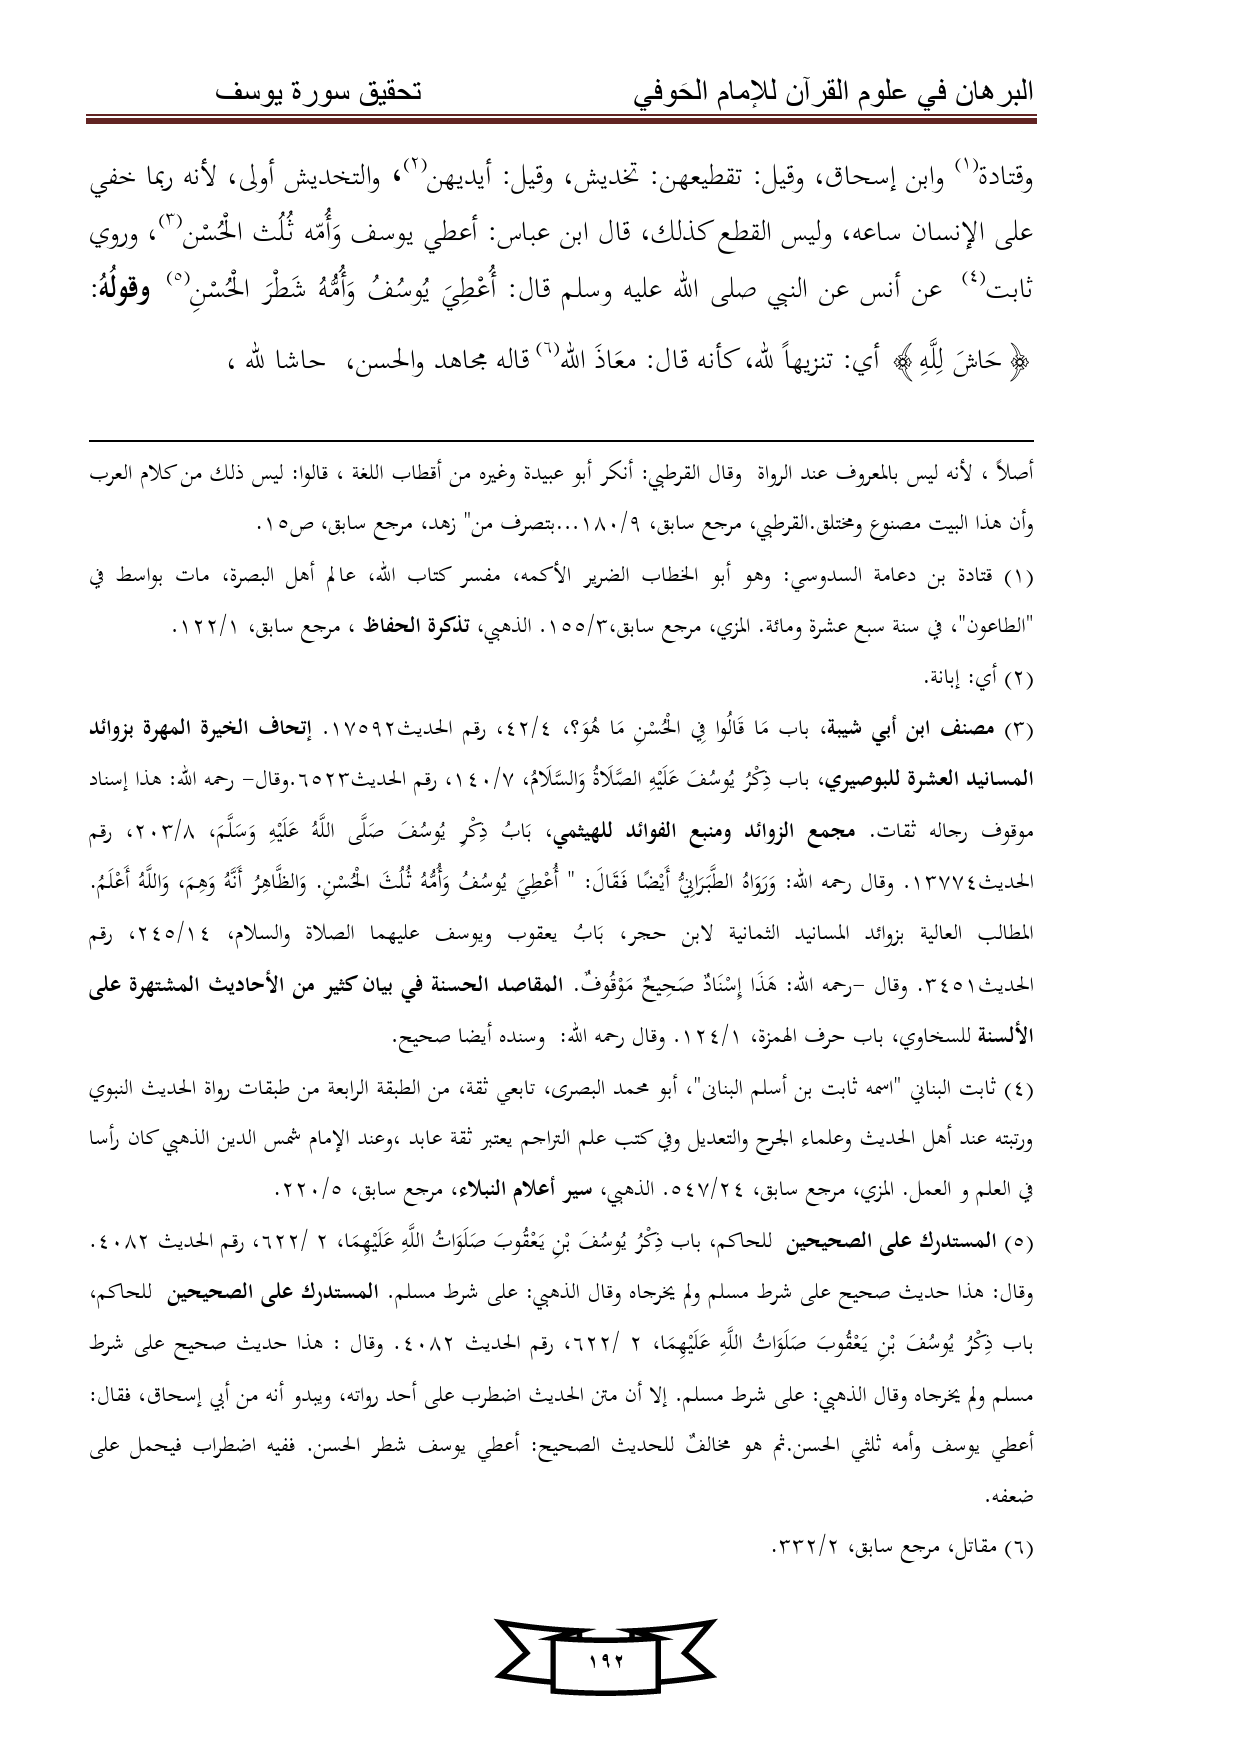 البرهان في علوم القرآن للإمام الحَوفي تحقيق سورة يوسف
وقتادة(١) وابن إسحاق، وقيل: تقطيعهن: تخديش، وقيل: أيديهن(٢)، والتخديش أولى، لأنه ربما خفي
على الإنسان ساعه، وليس القطع كذلك، قال ابن عباس: أعطي يوسف وَأُمّه ثُلُث الْحُسْن(٣)، وروي
ثابت(٤) عن أنس عن النبي صلى الله عليه وسلم قال: أُعْطِيَ يُوسُفُ وَأُمُّهُ شَطْرَ الْحُسْنِ(٥) وقولُهُ:
﴿حَاشَ لِلَّهِ﴾ أي: تنزيهاً لله، كأنه قال: معَاذَ الله(٦) قاله مجاهد والحسن، حاشا لله ،
أصلاً ، لأنه ليس بالمعروف عند الرواة وقال القرطبي: أنكر أبو عبيدة وغيره من أقطاب اللغة ، قالوا: ليس ذلك من كلام العرب
وأن هذا البيت مصنوع ومختلق.القرطبي، مرجع سابق، ١٨٠/٩...بتصرف من" زهد، مرجع سابق، ص١٥.
(١) قتادة بن دعامة السدوسي: وهو أبو الخطاب الضرير الأكمه، مفسر كتاب الله، عالم أهل البصرة، مات بواسط في
"الطاعون"، في سنة سبع عشرة ومائة. المزي، مرجع سابق،١٥٥/٣. الذهبي، تذكرة الحفاظ ، مرجع سابق، ١٢٢/١.
(٢) أي: إبانة.
(٣) مصنف ابن أبي شيبة، باب مَا قَالُوا فِي الْحُسْنِ مَا هُوَ؟، ٤٢/٤، رقم الحديث١٧٥٩٢. إتحاف الخيرة المهرة بزوائد
المسانيد العشرة للبوصيري، باب ذِكْرُ يُوسُفَ عَلَيْهِ الصَّلَاةُ وَالسَّلَامُ، ١٤٠/٧، رقم الحديث٦٥٢٣.وقال- رحمه الله: هذا إسناد
موقوف رجاله ثقات. مجمع الزوائد ومنبع الفوائد للهيثمي، بَابُ ذِكْرِ يُوسُفَ صَلَّى اللَّهُ عَلَيْهِ وَسَلَّمَ، ٢٠٣/٨، رقم
الحديث١٣٧٧٤. وقال رحمه الله: وَرَوَاهُ الطَّبَرَانِيُّ أَيْضًا فَقَالَ: " أُعْطِيَ يُوسُفُ وَأُمُّهُ ثُلُثَ الْحُسْنِ. وَالظَّاهِرُ أَنَّهُ وَهِمَ، وَاللَّهُ أَعْلَمُ.
المطالب العالية بزوائد المسانيد الثمانية لابن حجر، بَابُ يعقوب ويوسف عليهما الصلاة والسلام، ٢٤٥/١٤، رقم
الحديث٣٤٥١. وقال -رحمه الله: هَذَا إِسْنَادٌ صَحِيحٌ مَوْقُوفٌ. المقاصد الحسنة في بيان كثير من الأحاديث المشتهرة على
الألسنة للسخاوي، باب حرف الهمزة، ١٢٤/١. وقال رحمه الله: وسنده أيضا صحيح.
(٤) ثابت البناني "اسمه ثابت بن أسلم البنانى"، أبو محمد البصرى، تابعي ثقة، من الطبقة الرابعة من طبقات رواة الحديث النبوي
ورتبته عند أهل الحديث وعلماء الجرح والتعديل وفي كتب علم التراجم يعتبر ثقة عابد ،وعند الإمام شمس الدين الذهبي كان رأسا
في العلم و العمل. المزي، مرجع سابق، ٥٤٧/٢٤. الذهبي، سير أعلام النبلاء، مرجع سابق، ٢٢٠/٥.
(٥) المستدرك على الصحيحين للحاكم، باب ذِكْرُ يُوسُفَ بْنِ يَعْقُوبَ صَلَوَاتُ اللَّهِ عَلَيْهِمَا، ٢ /٦٢٢، رقم الحديث ٤٠٨٢.
وقال: هذا حديث صحيح على شرط مسلم ولم يخرجاه وقال الذهبي: على شرط مسلم. المستدرك على الصحيحين للحاكم،
باب ذِكْرُ يُوسُفَ بْنِ يَعْقُوبَ صَلَوَاتُ اللَّهِ عَلَيْهِمَا، ٢ /٦٢٢، رقم الحديث ٤٠٨٢. وقال : هذا حديث صحيح على شرط
مسلم ولم يخرجاه وقال الذهبي: على شرط مسلم. إلا أن متن الحديث اضطرب على أحد رواته، ويبدو أنه من أبي إسحاق، فقال:
أعطي يوسف وأمه ثلثي الحسن.ثم هو مخالفٌ للحديث الصحيح: أعطي يوسف شطر الحسن. ففيه اضطراب فيحمل على
ضعفه.
(٦) مقاتل، مرجع سابق، ٣٣٢/٢.
١٩٢